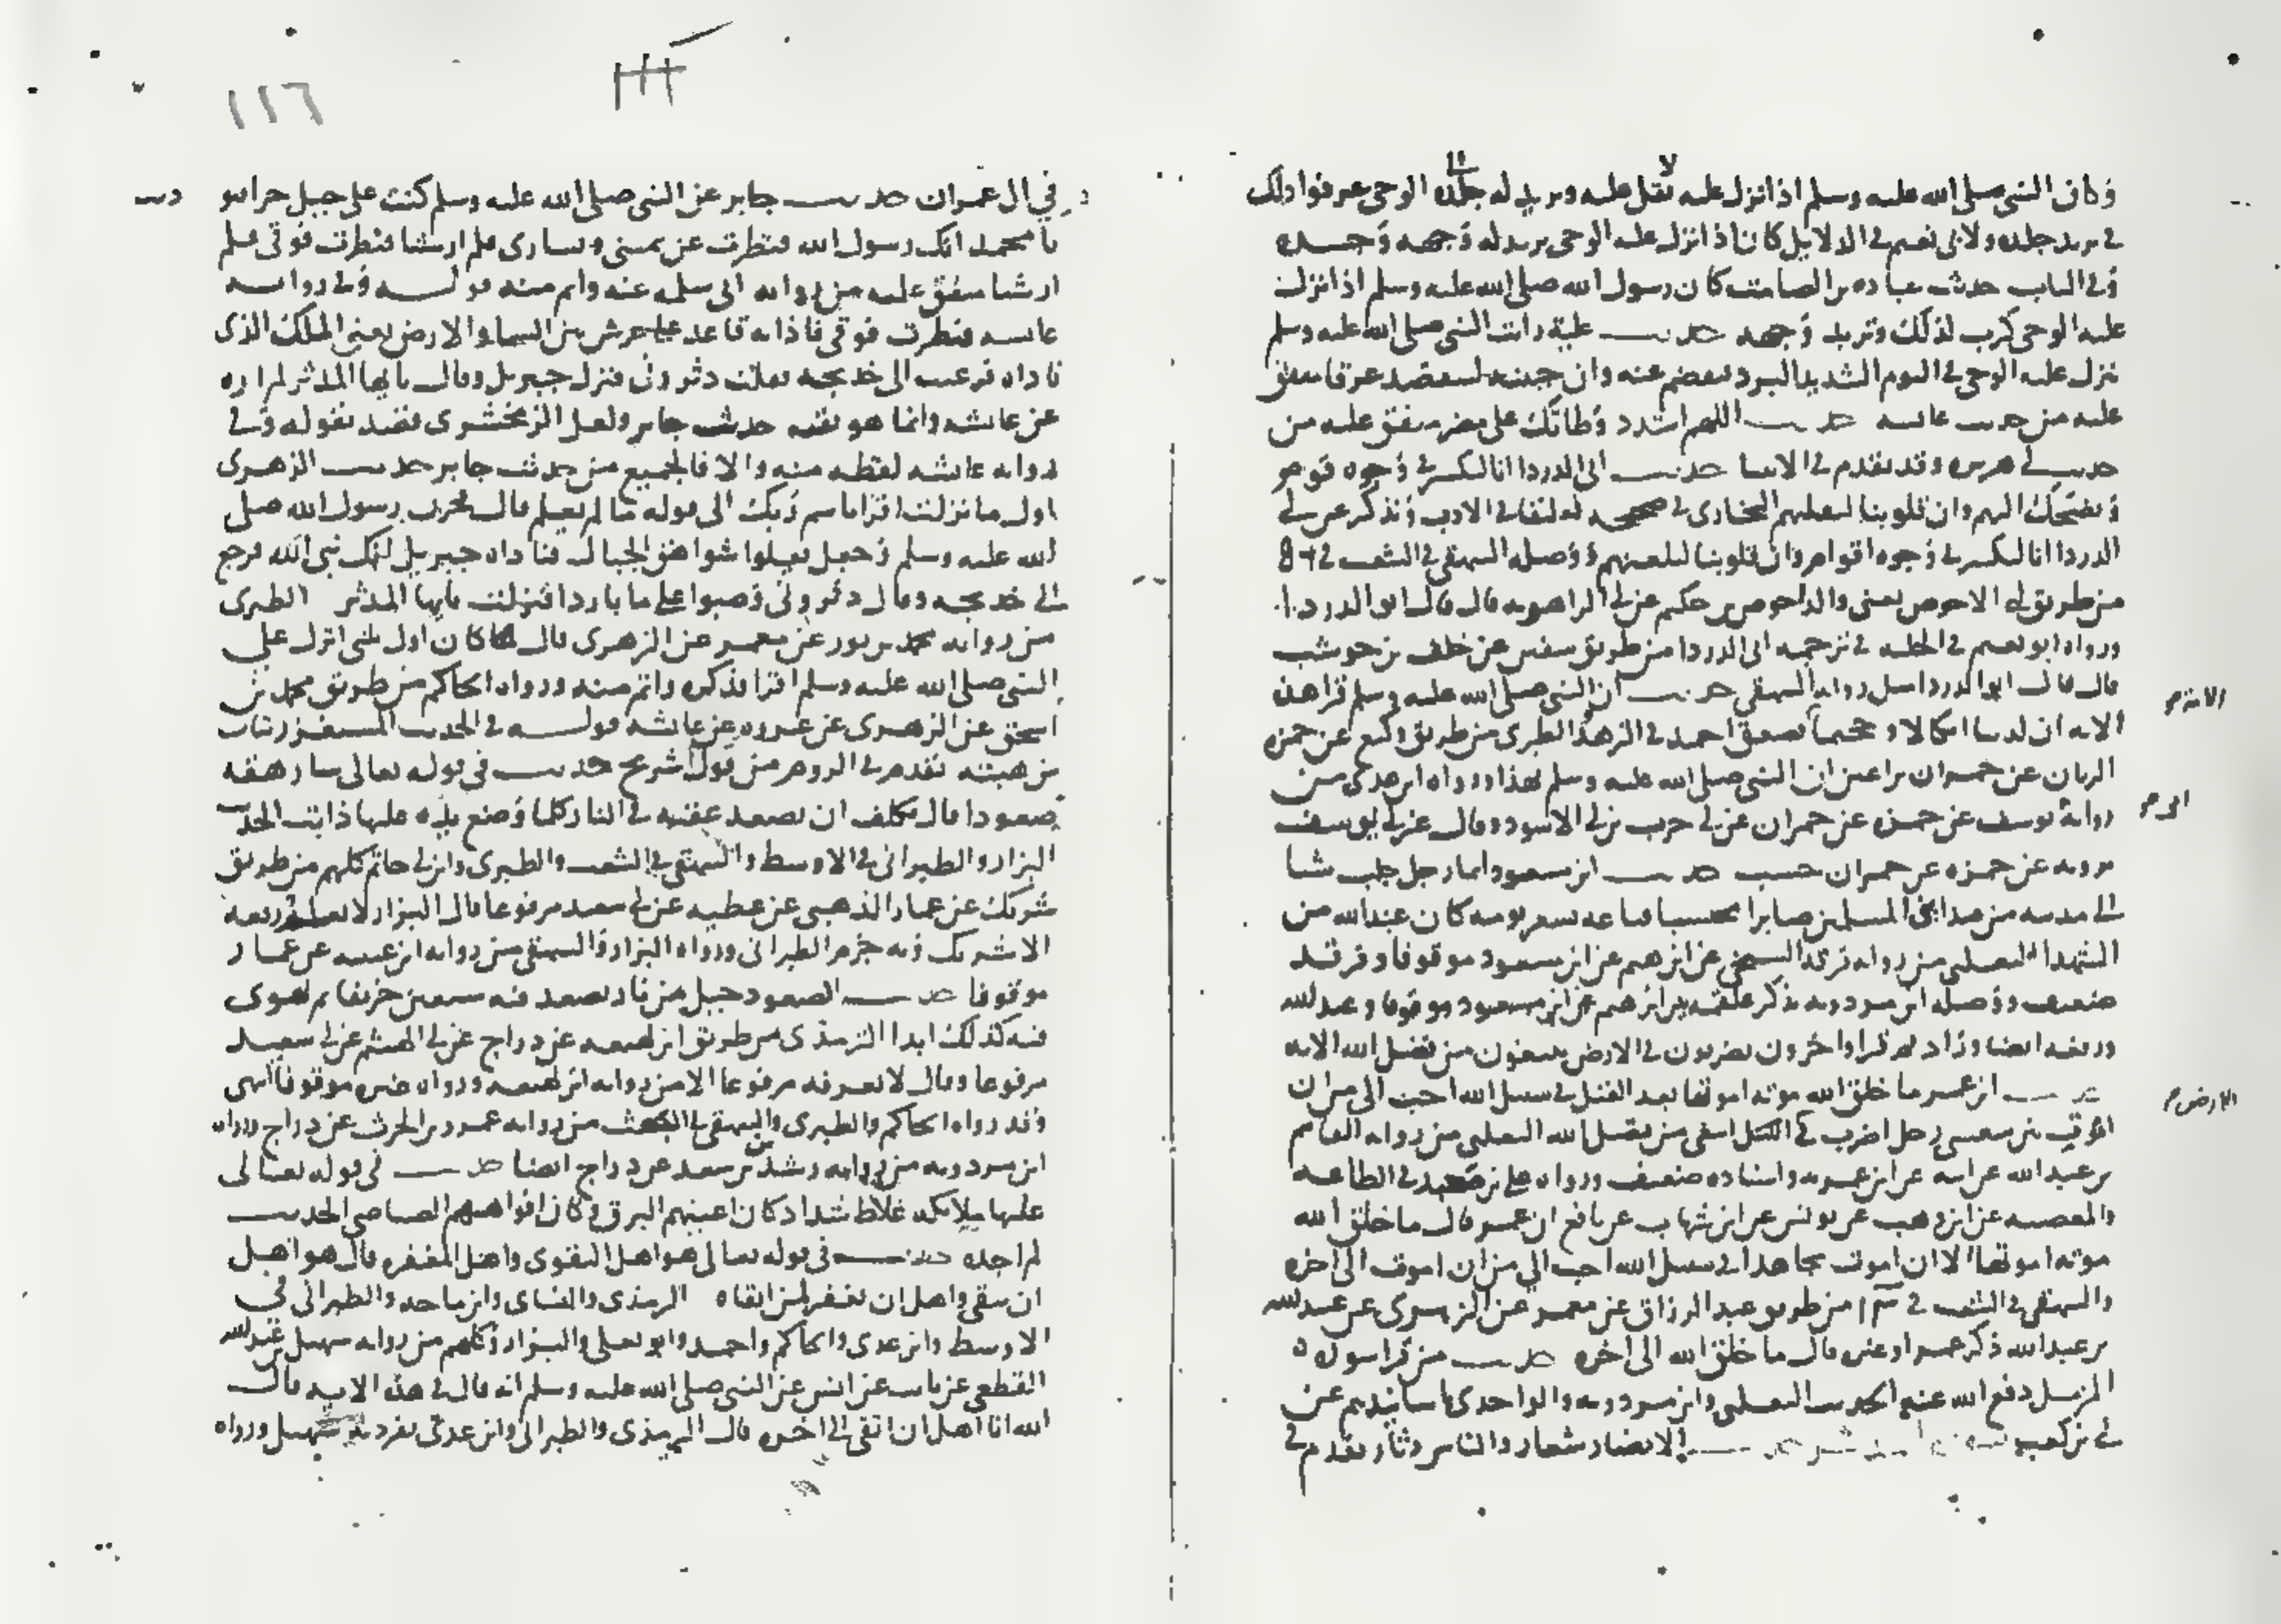 وكان النبي صلى الله عليه وسلم اذا نزل عليه ثقل عليه وتربد له جلده الوحي عرفوا ذلك
في تربد جلده ولابي نعيم في الدلايل كان اذا نزل عليه الوحي تربد له وجهه وجسده
وفي الباب حديث عباده بن الصامت كان رسول الله صلى الله عليه وسلم اذا نزل
عليه الوحي كرب لذلك وتربد وجهه حديث عايشة رايت النبي صلى الله عليه وسلم
ينزل عليه الوحي في اليوم الشديد البرد فيفصم عنه وان جبينه ليتفصد عرقا متفق
عليه من حديث عايشه حديث اللهم اشدد وطاتك على مضر متفق عليه من
حديث ابي هريره وقد تقدم في الانبيا حديث ابي الدردا انا لنكشر في وجوه قوم
ونضحك اليهم وان قلوبنا لتقليهم البخاري في صحيحه تعليقا في الادب ويذكر عن ابي
الدردا انا لنكشر في وجوه اقوام وان قلوبنا لتلعنهم ووصله البيهقي في الشعب في
من طريق ابي الاحوص يعني والد احوص بن حكيم عن ابي الزاهريه قال قال ابو الدردا
ورواه ابو نعيم في الحليه في ترجمه ابي الدردا من طريق سفين عن خلف بن حوشب
قال قال ابو الدردا مثل روايه البيهقي حديث ان النبي صلى الله عليه وسلم قرا هذه
الايه ان لدينا انكالا وجحيما فصعق احمد في الزهد الطبري من طريق وكيع عن حمزه
الزيات عن حمران بن اعين ان النبي صلى الله عليه وسلم بهذا ورواه ابن عدي من
رواية يوسف عن حمزه عن حمران عن ابي حرب بن ابي الاسود وقال عن ابي يوسف
يرويه عن حمزه عن حمران حسب حديث ابن مسعود ايما رجل جلب شيا
الى مدينه من مداين المسلمين صابرا محتسبا فباعه بسعر يومه كان عند الله من
الشهدا الثعلبي من روايه فرقد السبخي عن ابرهيم عن ابن مسعود موقوفا وفرقد
ضعيف ووصله ابن مردويه بذكر علقمه بين ابرهيم عن ابن مسعود موقوفا وعبد الله
ورفعه ايضا وزاد ثم قرا واخرون يضربون في الارض يبتغون من فضل الله الايه
حديث ابن عمر ما خلق الله موته اموتها بعد القتل في سبيل الله احب الي من ان
اموت بين شعبتي رحل اضرب في الارض ابتغي من فضل الله الثعلبي من روايه القاسم
بن عبد الله عن ابيه عن ابن عمر به واسناده ضعيف ورواه علي بن معبد في الطاعه
والمعصيه عن ابن وهب عن يونس عن ابن شهاب عن نافع ان عمر قال ما خلق الله
موته اموتها الا ان اموت مجاهدا في سبيل الله احب الي من ان اموت الى اخره
والبيهقي في الشعب في من طريق عبد الرزاق عن معمر عن الزهري عن عبيد الله
بن عبد الله ذكر عمر او غيره قال ما خلق الله الى اخره حديث من قرا سورة
المزمل دفع الله عنه الحديث الثعلبي وابن مردويه والواحدي باسانيدهم عن
ابي بن كعب الانصار شعار والناس دثار تقدم في
الارض
١١٦
في ال عمران حديث جابر عن النبي صلى الله عليه وسلم كنت على جبل حرا فنوديت
يا محمد انك رسول الله فنظرت عن يميني ويساري فلم ار شيا فنظرت فوقي فلم
ار شيا متفق عليه من روايه ابي سلمه عنه واتم منه قوله وفي روايه
عايشه فنظرت فوقي فاذا به قاعد على عرش بين السما والارض يعني الملك الذي
ناداه فرعبت الى خديجه فقلت دثروني فنزل جبريل وقال يايها المدثر لم اره
عن عايشه وانما هو بقيه حديث جابر ولعل الزمخشري قصد بقوله وفي
روايه عايشه لفظه منه والا فالجميع من حديث جابر حديث الزهري
اول ما نزلت اقرا باسم ربك الى قوله ما لم يعلم قال فحزن رسول الله صلى
الله عليه وسلم وجعل يعلوا شواهق الجبال فناداه جبريل انك نبي الله فرجع
الى خديجه وقال دثروني وصبوا علي ما باردا فنزلت يايها المدثر الطبري
من روايه محمد بن ثور عن معمر عن الزهري قال كان اول شي انزل على
النبي صلى الله عليه وسلم اقرا فذكره واتم منه ورواه الحاكم من طريق محمد بن
اسحق عن الزهري عن عروه عن عايشه قوله في الحديث المستغزر يثاب
من هبته تقدم في الروم من قول شريح حديث في قوله تعالى سارهقه
صعودا قال يكلف ان يصعد عقبه في النار كلما وضع يده عليها ذابت الحديث
البزار والطبراني في الاوسط والبيهقي في الشعب والطبري وابن ابي حاتم كلهم من طريق
شريك عن عمار الذهبي عن عطيه عن ابي سعيد مرفوعا قال البزار لا نعلم رفعه
الا شريك وبه جزم الطبراني ورواه البزار والبيهقي من روايه ابن عيينه عن عمار
موقوفا حديث الصعود جبل من نار يصعد فيه سبعين خريفا ثم يهوي
فيه كذلك ابدا الترمذي من طريق ابن لهيعه عن دراج عن ابي الهيثم عن ابي سعيد
مرفوعا وقال لا نعرفه مرفوعا الا من روايه ابن لهيعه ورواه غيره موقوفا انتهى
وقد رواه الحاكم والطبري والبيهقي في البعث من روايه عمرو بن الحرث عن دراج ورواه
ابن مردويه من روايه رشدين بن سعد عن دراج ايضا حديث في قوله تعالى
عليها ملايكه غلاظ شداد كان اعينهم البرق وكان افواههم الصياصي الحديث
لم اجده حديث في قوله تعالى هو اهل التقوى واهل المغفره قال هو اهل
ان يتقى واهل ان يغفر لمن اتقاه الترمذي والنساي وابن ماجه والطبراني في
الاوسط وابن عدي والحاكم واحمد وابو يعلى والبزار وكلهم من روايه سهيل بن عبد الله
القطعي عن ثابت عن انس عن النبي صلى الله عليه وسلم انه قال في هذه الايه قال
الله انا اهل ان اتقى الى اخره قال الترمذي والطبراني وابن عدي تفرد به سهيل ورواه